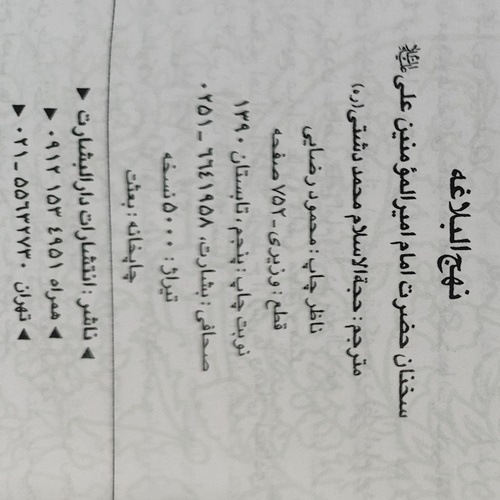 نهج البلاغه
سخنان حضرت امام امیرالمؤمنین علی علیه السلام
مترجم: حجةالاسلام محمد دشتی (ره)
ناظر چاپ: محمود رضایی
قطع: وزیری - ۷۵۲ صفحه
نوبت چاپ: پنجم، تابستان ۱۳۹۰
صحافی: بشارت، ۶۶۴۱۹۵۸ - ۰۲۵۱
تیراژ: ۵۰۰۰ نسخه
چاپخانه: بعثت
◄ ناشر: انتشارات دارالبشارت ►
◄ همراه ۴۹۵۱ ۱۵۳ ۰۹۱۲ ►
◄ تهران ۵۵۶۳۲۷۳۰ - ۰۲۱ ►